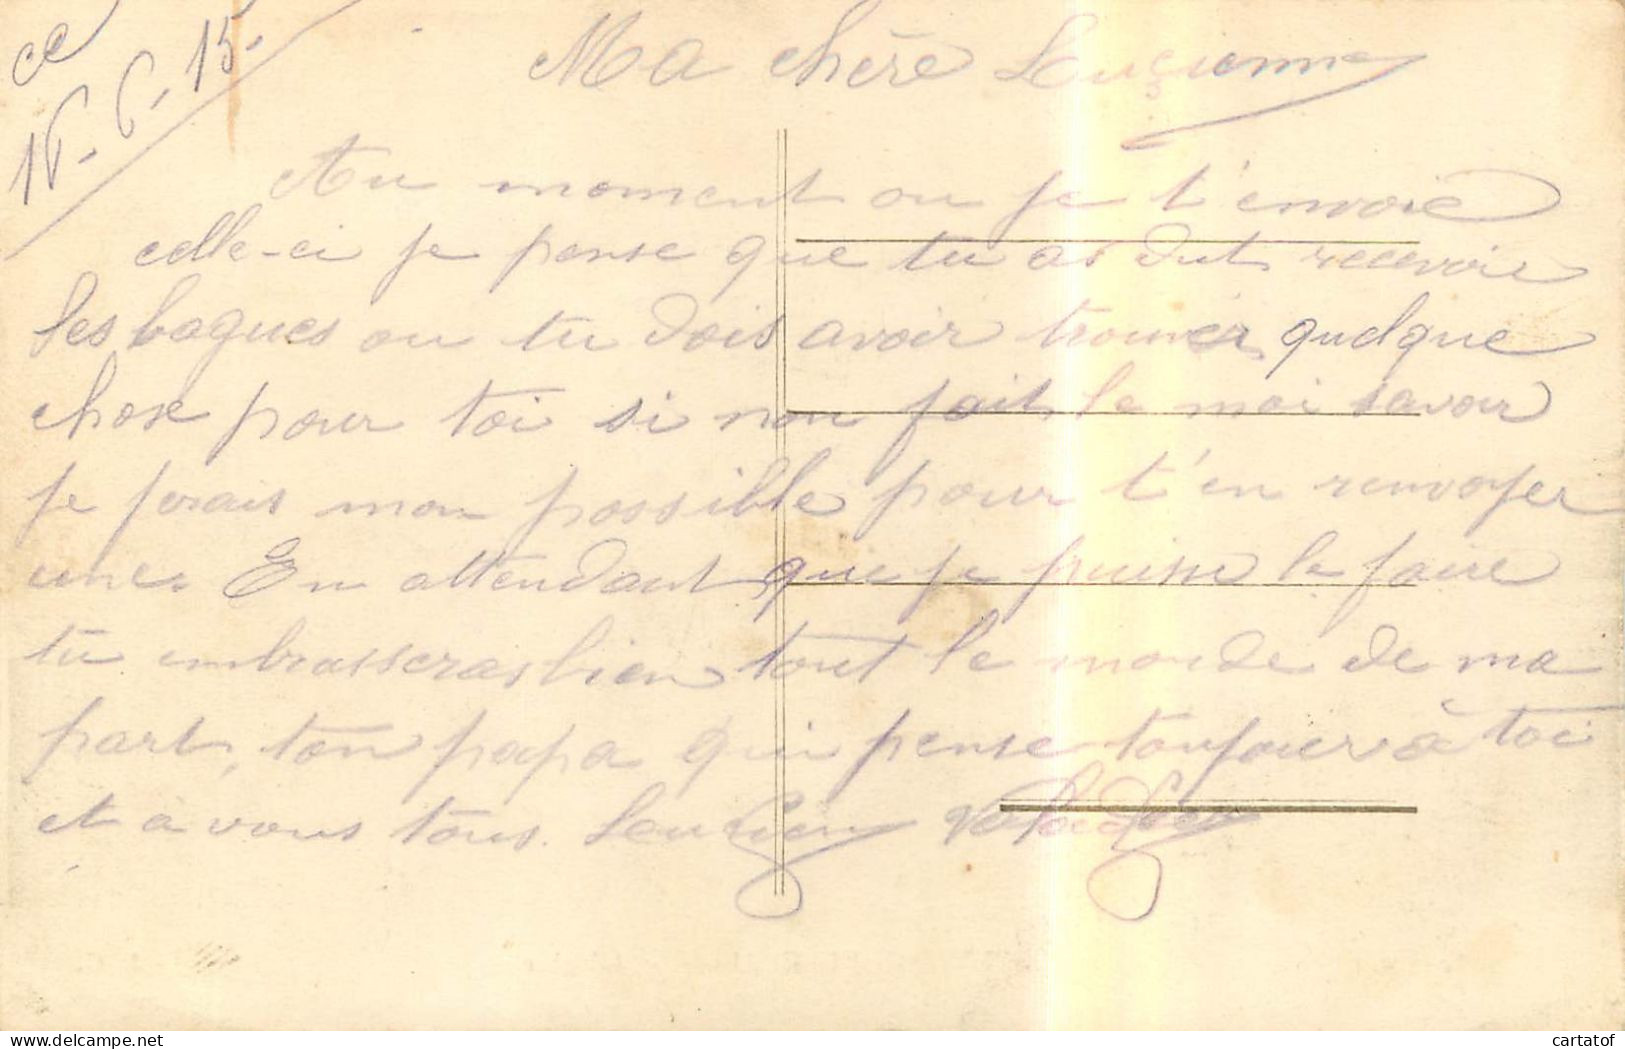 ce
16-6-15-
Ma chère Lucienne
Au moment ou je t'envoie
celle-ci je pense que tu as dut recevoir
les bagues ou tu dois avoir trouver quelque
chose pour toi si non fait le moi savoir
je ferais mon possible pour t'en renvoyer
unes En attendant que je puisse le faire
tu embrasseras bien tout le monde de ma
part, ton papa qui pense toujours à toi
et a vous tous. Lucien
www.delcampe.net
cartatof